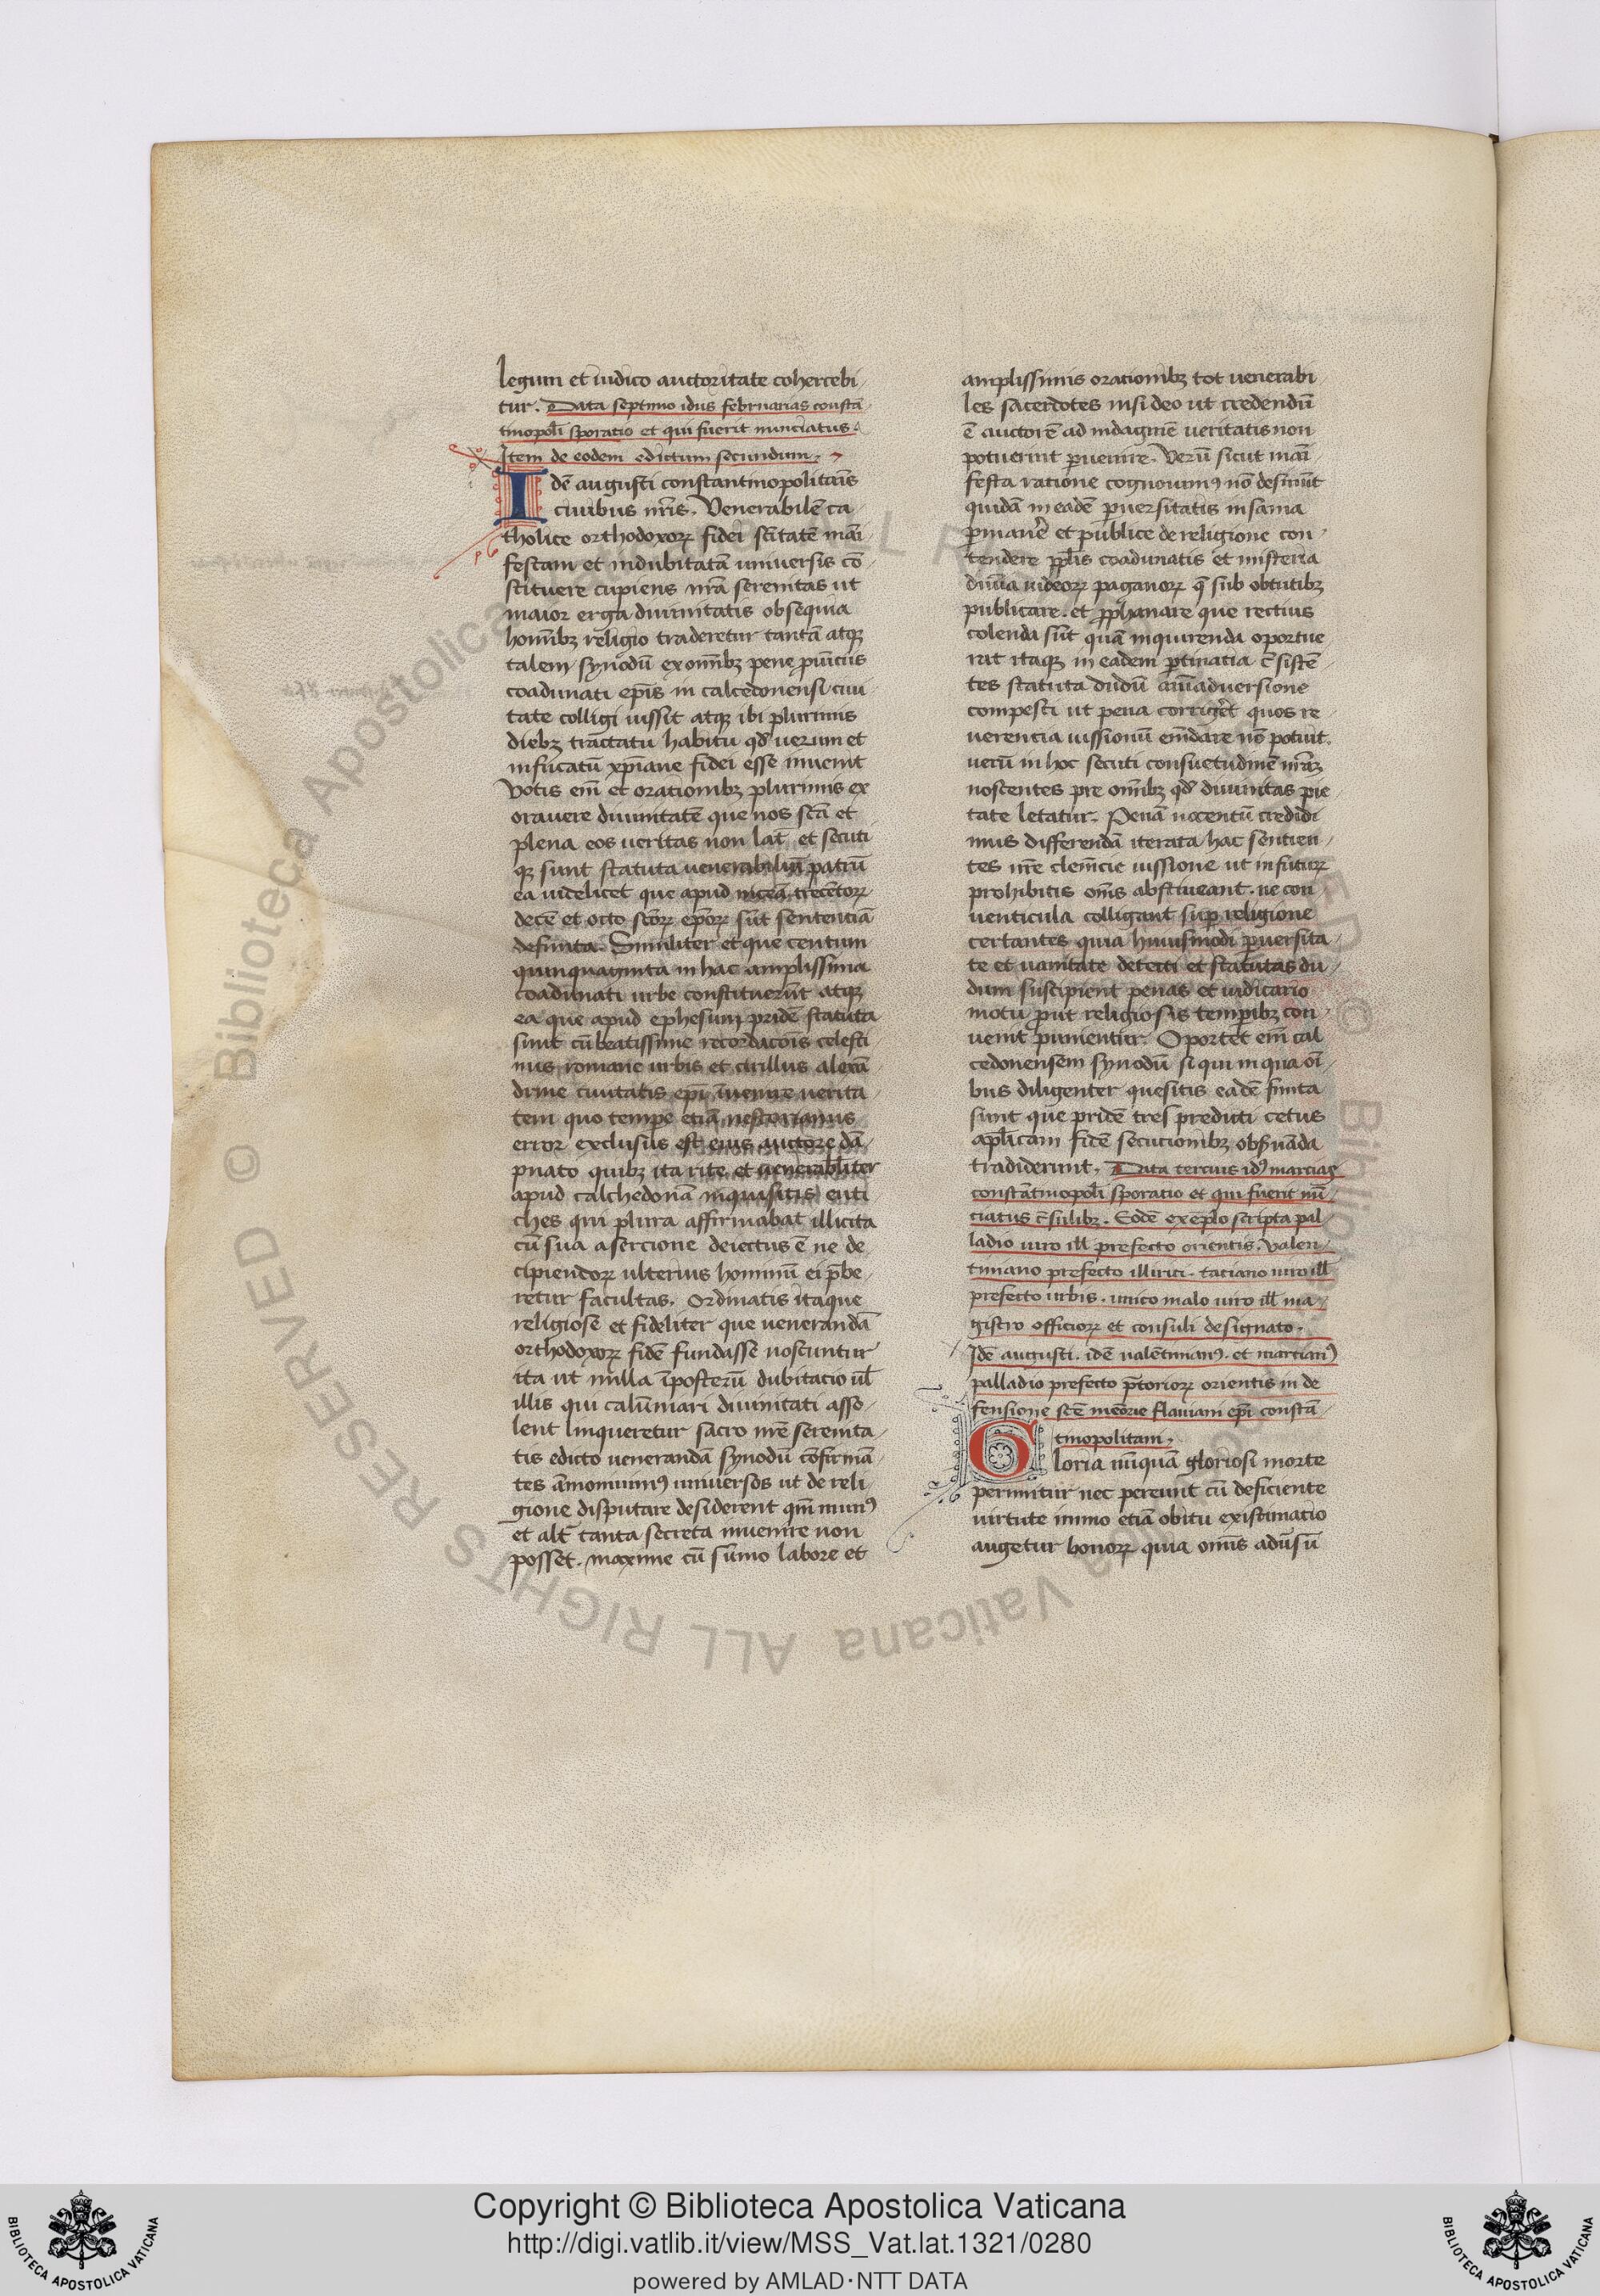 legum et iudico auctoritate cohercebi
tur. Data septimo idus februarias constā
tinopoli sporatio et qui fuerit nunciatus.
Item de eodem edictum secundum.
Idē augusti constantinopolitanis
ciuibus nr̄is. Venerabilē ca
tholice orthodoxorꝝ fidei sc̄itatē mani
festam et indubitatā uniuersis cō
stituere cupiens nr̄a serenitas ut
maior erga diuinitatis obsequia
hominibꝫ religio traderetur tantā atqꝫ
talem synodū ex omnibꝫ pene ꝓuīciis
coadunati ep̄is in calcedonensi ciui
tate colligi iussit atqꝫ ibi plurimis
diebꝫ tractatu habitu qd̄ uerum et
infucatū xp̄iane fidei esse inuenit
Votis em̄ et orationibꝫ plurimis ex
orauere diuinitatē que nos sc̄a et
plena eos ueritas non lat̄ et secuti
qꝫ sunt statuta uenerabiliū patrū
ea uidelicet que apud niceā trecentorꝝ
decē et octo sc̄orꝝ ep̄orꝝ sūt sententiā
definita. Similiter et que centum
quinquaginta in hac amplissima
coadunati urbe constituerūt atqꝫ
ea que apud ephesum pridē statuta
sunt cū beatissime recordacōis celesti
nus romane urbis et cirillus alexā
drine ciuitatis ep̄i īuenire uerita
tem quo tempe etiā nestorianus
error exclusus est eius auctore dā
pnato quibꝫ ita rite et uenerabliter
apud calchedonā inquisitis euti
ches qui plura affirmabat illicita
cū sua asercione deiectus ē ne de
cipiendorꝝ ulterius hominū ei p̄be
retur facultas. Ordinatis itaque
religiose et fideliter que uenerandā
orthodoxorꝝ fidē fundasse noscuntur
ita ut nulla īposterū dubitacio ul̄
illis qui calūmari diuinitati asso
lent linqueretur sacro nr̄e serenita
tis edicto uenerandā synodū cōfirmā
tes āmonuimꝰ uniuersos ut de reli
gione disputare desiderent qm̄ munꝰ
et alt̄ tanta secreta inuenire non
posset. maxime cū sūmo labore et
amplissimis orationibꝫ tot uenerabi
les sacerdotes nisi deo ut credendū
ē auctorē ad indaginē ueritatis non
potuerint ꝑuenire. Verū sicut mani
festa ratione cognouimꝰ nō desinūt
quidā in eadē ꝑuersitatis insania
ꝑmanere et publice de religione con
tendere pp̄lis coadunatis et misteria
diuīa iudeorꝝ paganorꝝ qꝫ sub obtutibꝫ
publicare. et ꝓphanare que rectius
colenda sūt quā inquirenda oportue
rat itaqꝫ in eadem ꝑtinatia c̄sistē
tes statuta dudū aīaduersione
compesti ut pena corriget quos re
uerencia iussionū em̄dare nō potuit.
uerū in hoc secuti consuetudinē nr̄aꝫ
noscentes pre omnibꝫ qd̄ diuinitas pie
tate letatur. Penā nocentū credidi
mus differendā iterata hac sentien
tes nr̄e clem̄cie iussione ut in futurꝝ
prohibitis om̄s abstineant. ne con
uenticula colligant suꝑ religione
certantes quia huiusmodi ꝑuersita
te et uanitate detecti et statutas du
dum suscipient penas et iudicario
motu ꝓut religiosis tempibꝫ con
uenit punientur. Oportet em̄ cal
cedonensem synodū si qui in qua oī
bus diligenter quesitis eadē finita
sunt que pridē tres predicti cetus
apl̄icam fidē secutionibꝫ obßuāda
tradiderunt. Data tercius idꝰ marcias
constātinopoli sporatio et qui fuerit nū
ciatus c̄sulibꝫ. Eodē exēplo scripta pal
ladio uiro ill̄ prefecto orientis. Valen
tiniano prefecto illirici. taciano uiro ill̄
prefecto urbis. unico malo uiro ill̄ ma
gistro officiorꝝ et consuli designato.
Idē augusti. idē ualētinianꝰ. et marcianꝰ
palladio prefecto p̄toriorꝝ orientis in de
fensione sc̄e memorie flauiani ep̄i constā
tinopolitani.
Gloria nūquā gloriosi morte
perimitur nec pereunt cū deficiente
uirtute immo etiā obitu existimatio
augetur bonorꝝ quia omīs aduīsū
Copyright © Biblioteca Apostolica Vaticana
http://digi.vatlib.it/view/MSS_Vat.lat.1321/0280
powered by AMLAD·NTT DATA